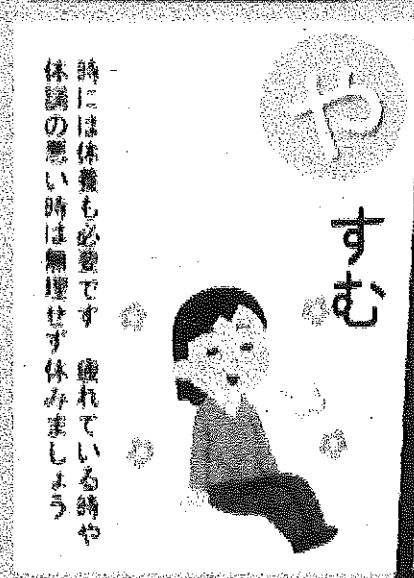 や
すむ
時には休養も必要です　疲れている時や
体調の悪い時は無理せず休みましょう